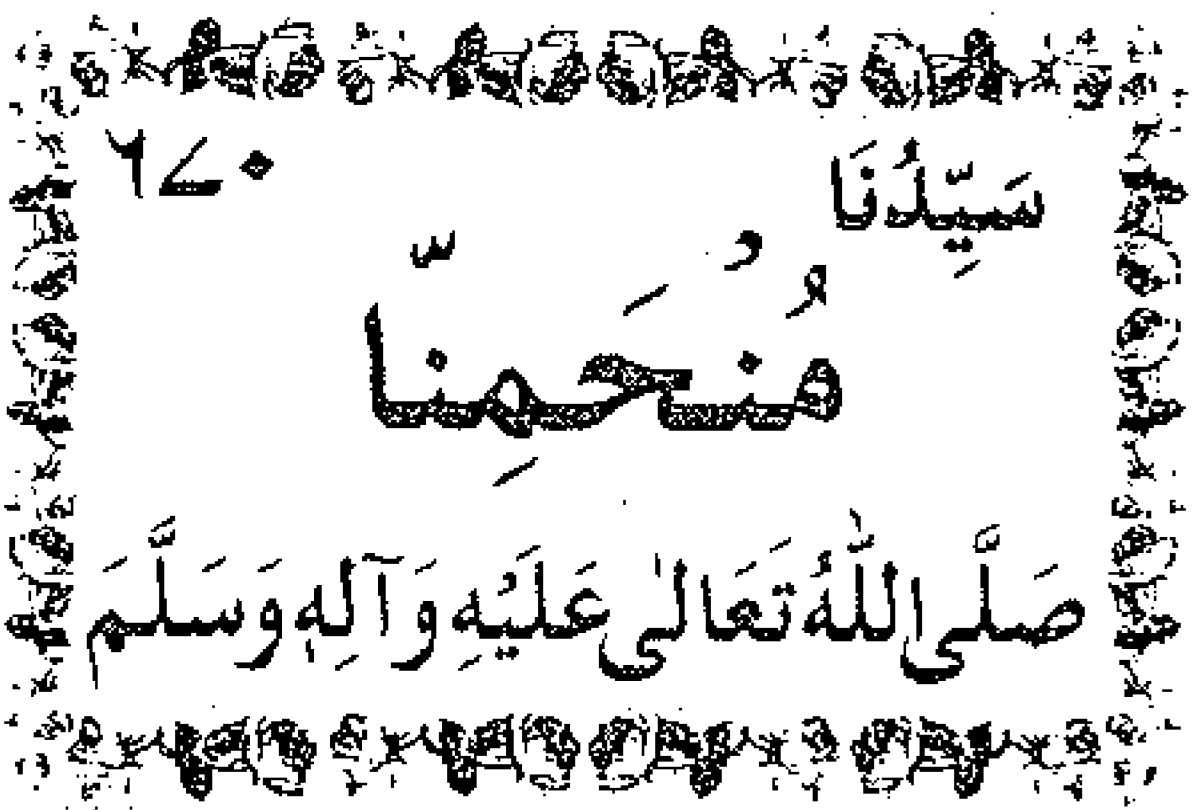 سَيِّدُنَا ۶۷۰
مُنْحَمِنّا
صَلَّى اللّٰهُ تَعَالىٰ عَلَيْهِ وَآلِهٖ وَسَلَّمَ